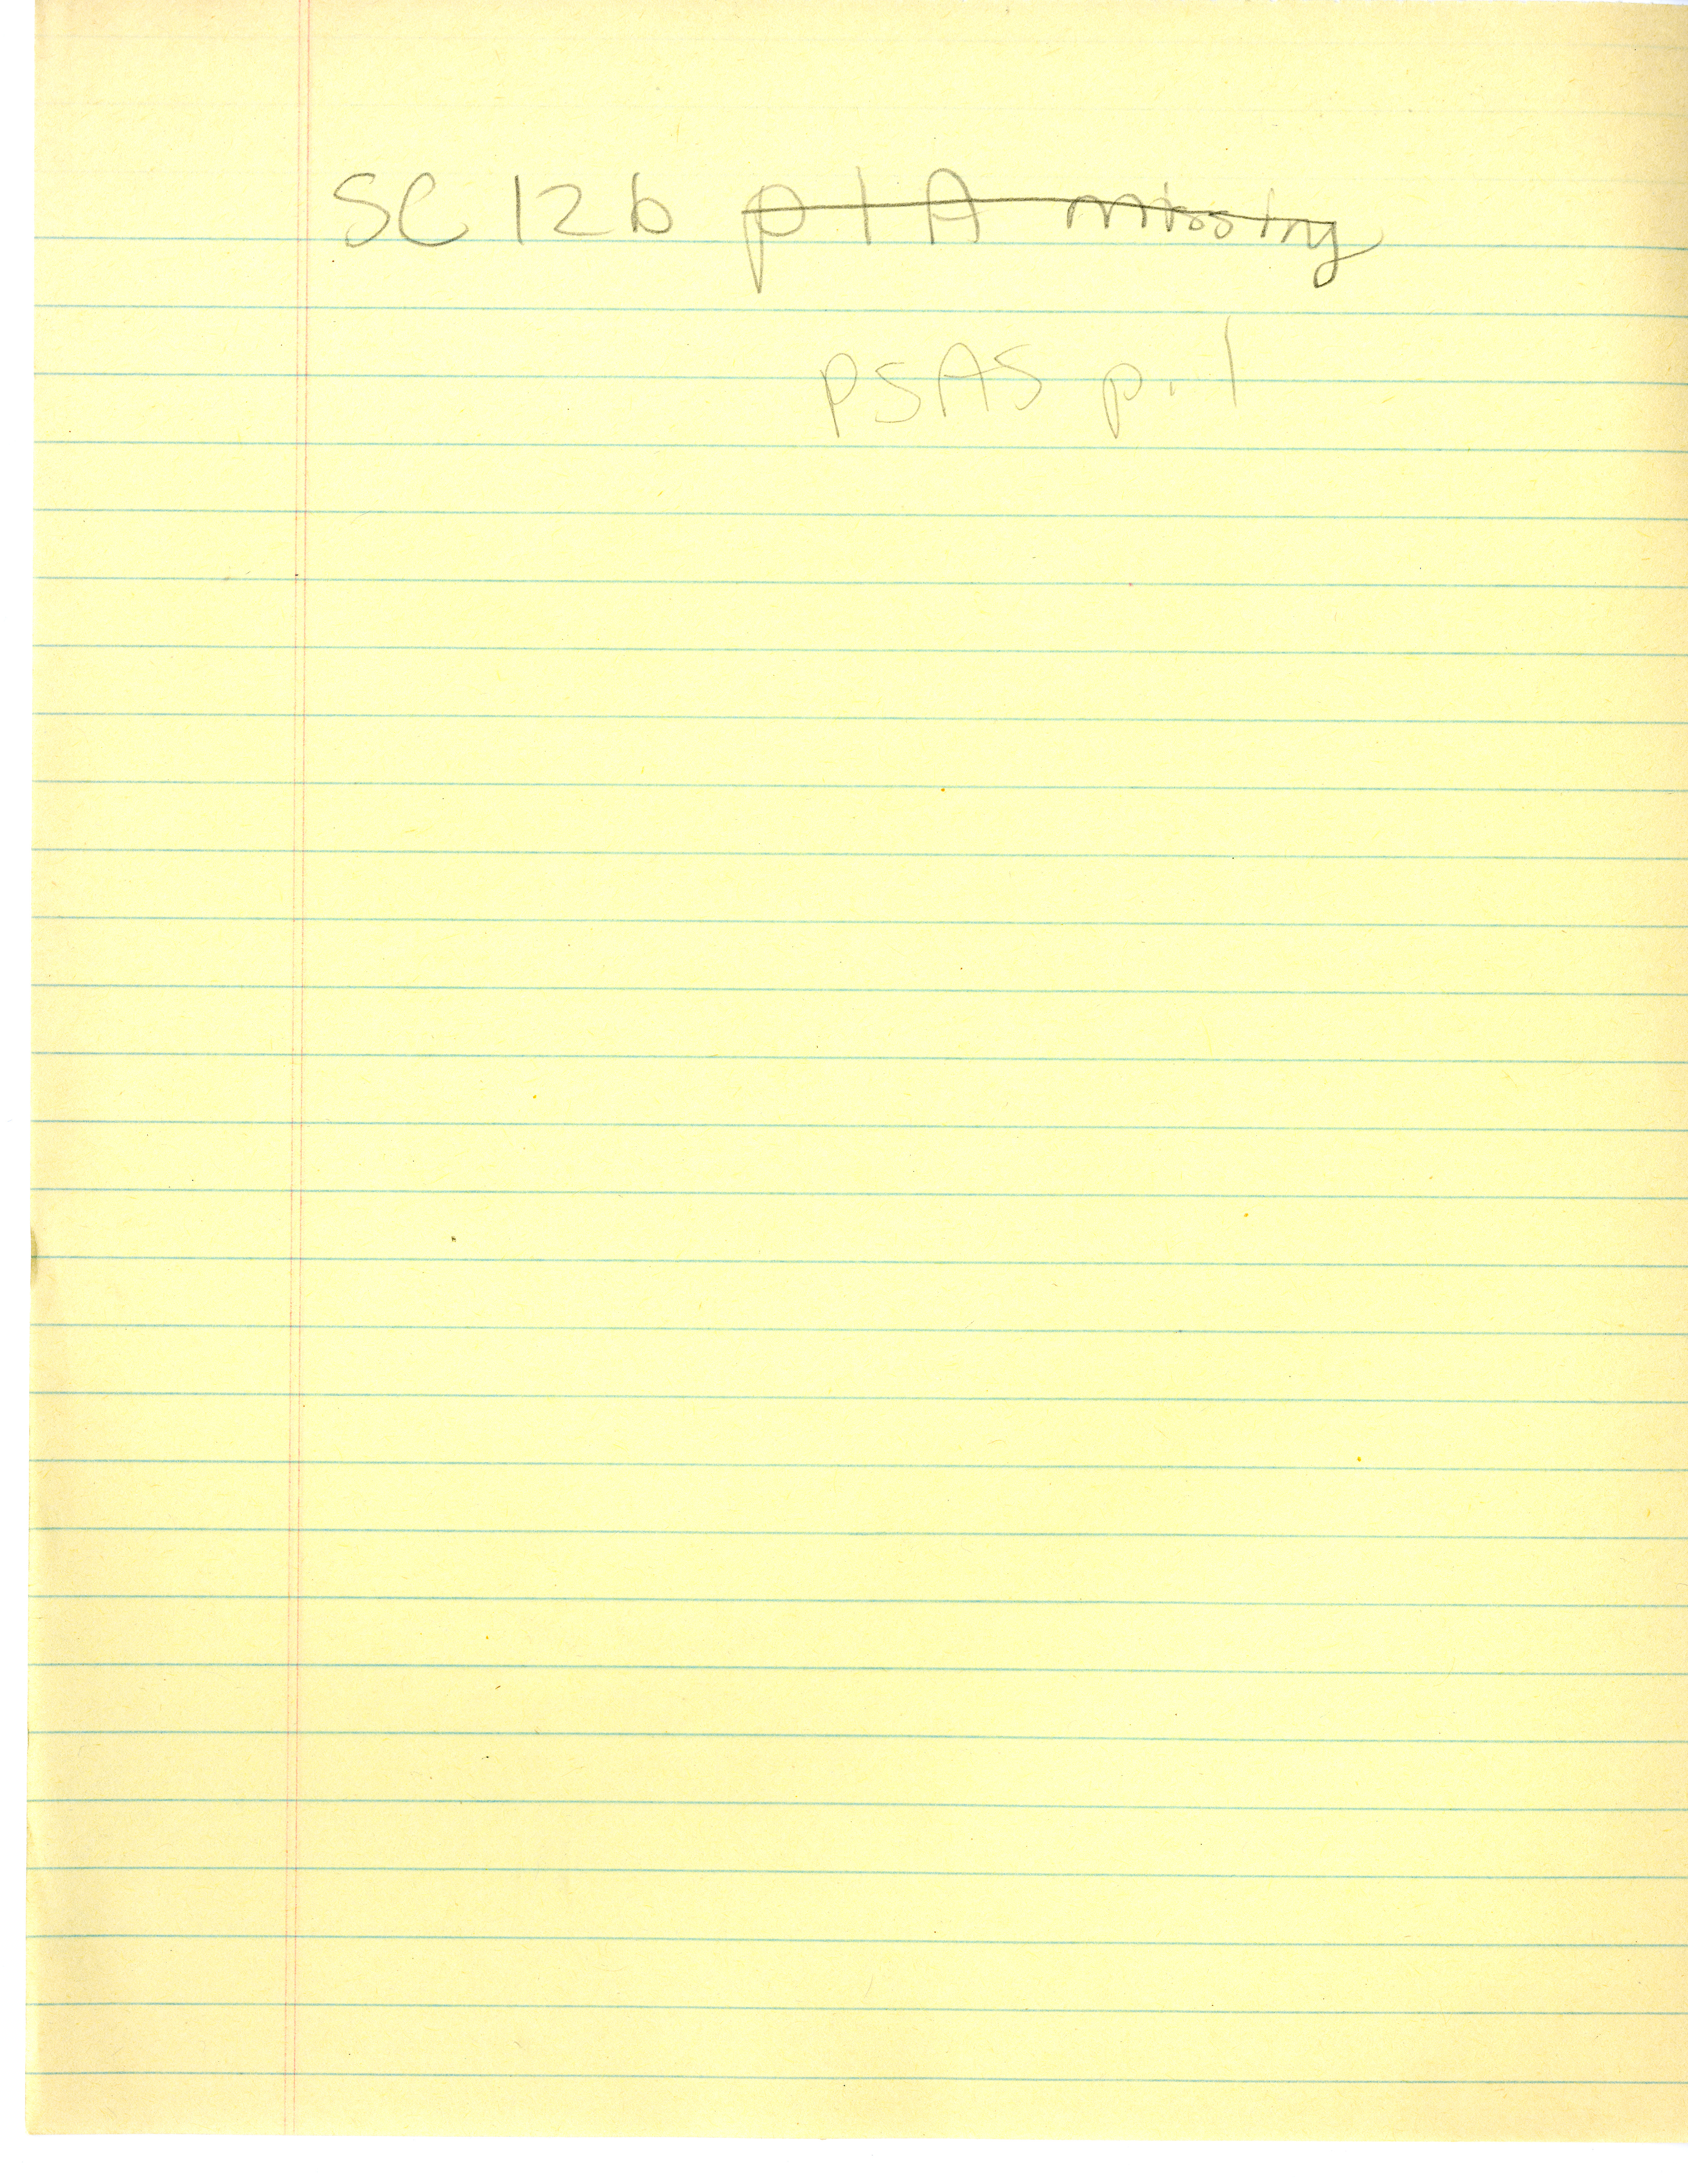 SC 12 b p 1 A missing
PSAS p. 1